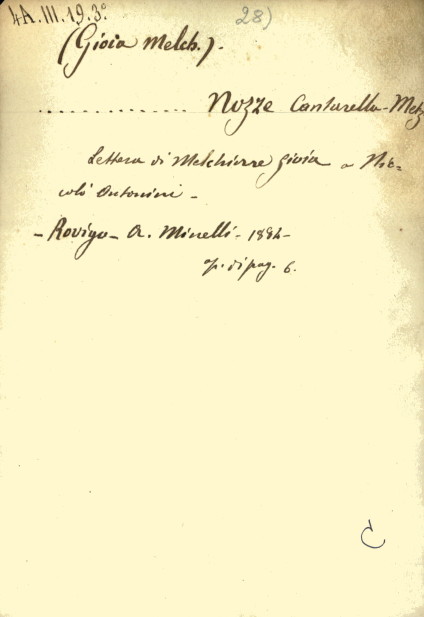 4A.III.19.3°
28)
(Gioia Melch.).
.............. Nozze Cantarella-Metz
Lettera di Melchiorre Gioia a Nic=
colò Antonini -
- Rovigo - A. Minelli - 1884 -
op. di pag. 6.
C